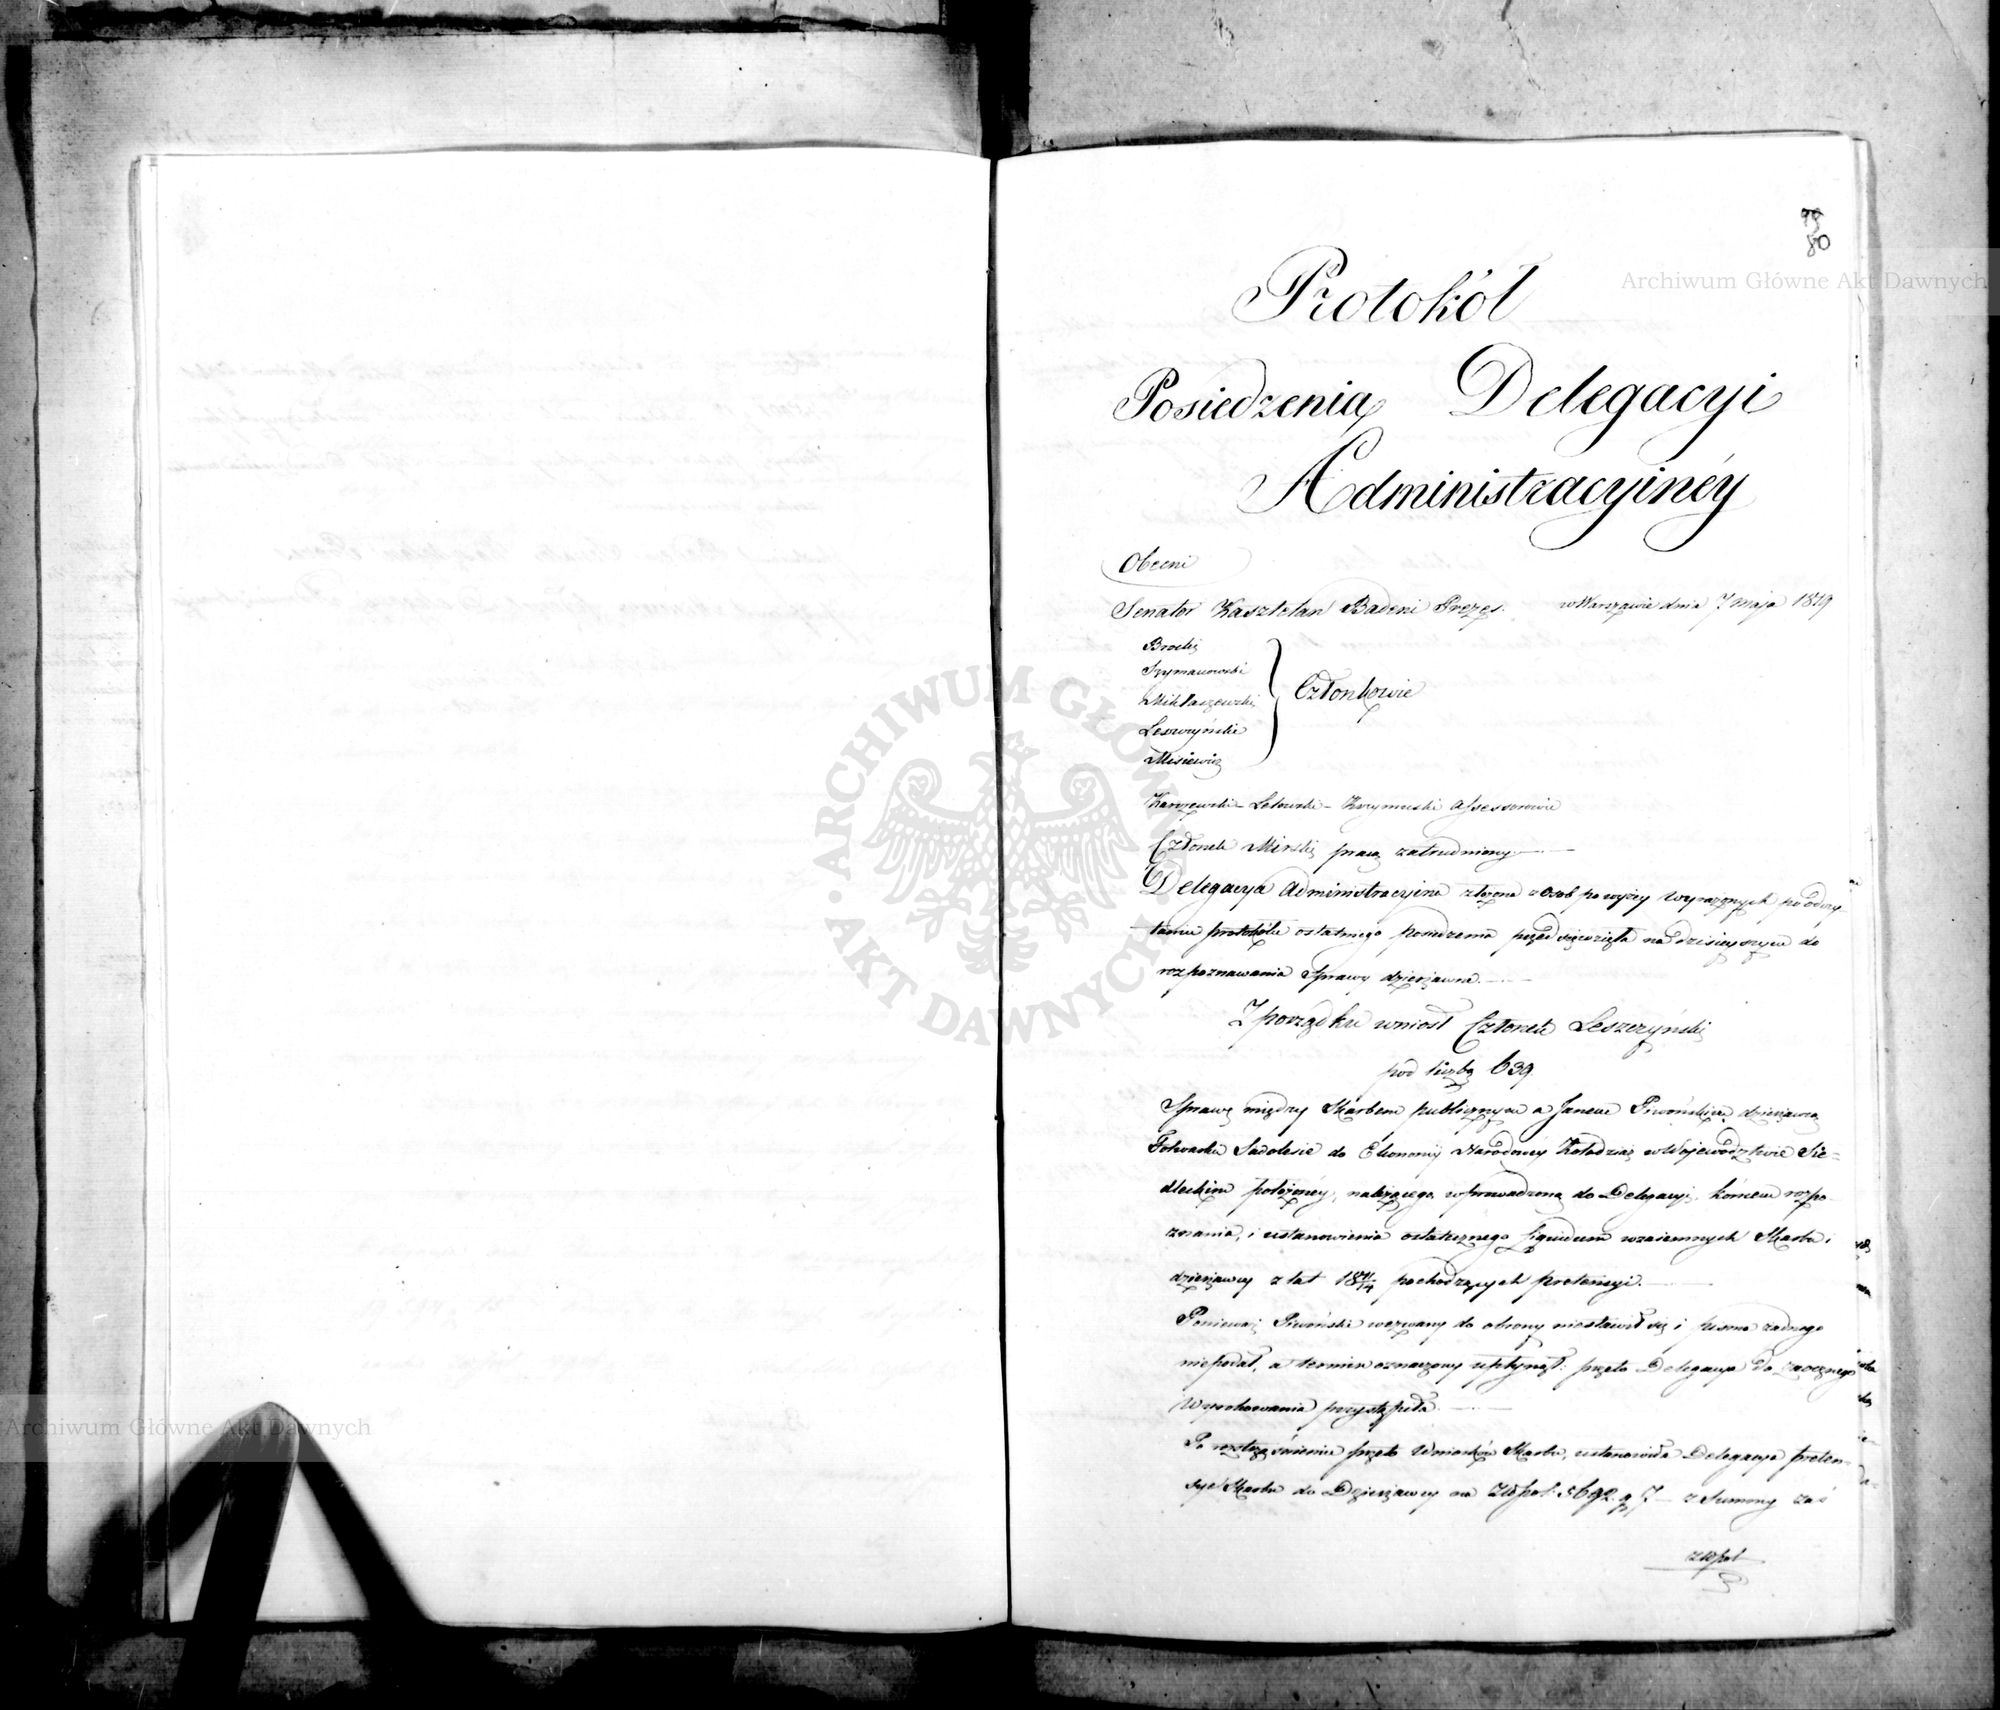 78
80
Protokół
Posiedzenia Delegacyi
Administracyinéy
Obecni
Senator Kasztelan Badeni Prezes. w Warszawie dnia 7 Maja 1819
Brocki
Szymanowski
Mikłaszewski
Leszczyński
Misiewicz
Członkowie
Karczewski – Letowski – Krzymuski Assessorowie
Członek Mirski pracą zatrudniony
Delegacya Administracyina złożona z Osób powyżey wyrażonych po odczy-
taniu protokółu ostatniego posiedzenia przedsięwzięła na dzisieyszym do
rozpoznawania Sprawy dzierżawne.
Z porządku wniosł Członek Leszczyński
pod liczbą 639.
Sprawę między Skarbem publicznym a Janem Piwońskim dzierżawcą
Folwarku Sadolesie do Ekonomij Narodowéy Kołodziąż w Województwie Sie-
dleckim położonéy, należącego, wprowadzoną do Delegacyi, końcem rozpo-
znania, i ustanowienia ostatecznego liquidum wzaiemnych Skarbu i
dzierżawcy z lat 18 11/14 pochodzących pretensyi.
Ponieważ Piwoński wezwany do obrony niestawił się i pisma żadnego
niepodał, a termin oznaczony upłynął: przeto Delegacya do zaocznego
Wyrokowania przystąpiła.
Po roztrząśnieniu przeto Wniosków Skarbu, ustanowiła Delegacya preten-
sye Skarbu do Dzierżawcy na Złp pol: 5692 gr 7 – z Summy zaś
złp pol
Archiwum Główne Akt Dawnych
Archiwum Główne Akt Dawnych
ARCHIWUM GŁÓWNE AKT DAWNYCH